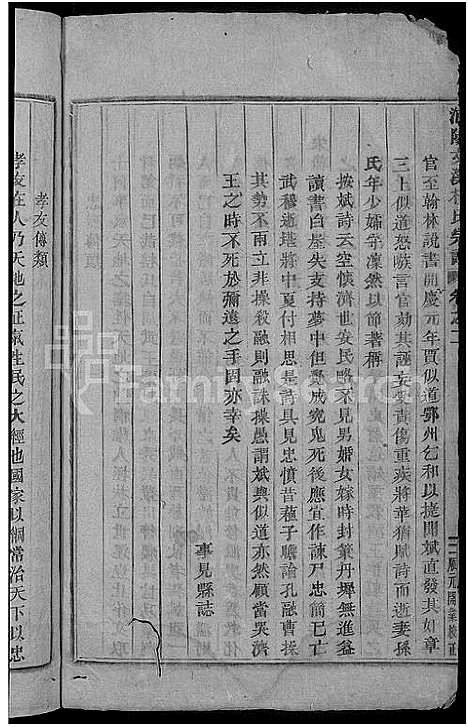 官至翰林說書開慶元年賈似道鄂州乞和以捷聞斌直發其奸章
三上似道怒嗾言官劾其誣妄責傷重疾將革猶賦詩而逝妻孫
氏年少孀守凜然以節著稱
按斌詩云空懷濟世安民略不見男婚女嫁時封篆丹墀無進益
讀書白屋失支持夢中但與成究鬼死後應宜作諫尸忠簡已亡
武穆逝堪將付相思是詩具見忠憤昔蘓子瞻論孔融曹操
其勢不兩立非操殺融則融誅操愚謂斌與似道亦然顧當吳濟
王之時不死於彌遠之手固亦幸矣
事見縣誌
孝友傳類
孝友在人乃天地之正氣生民之大經也國家以綱常治天下以忠
TaminSearch